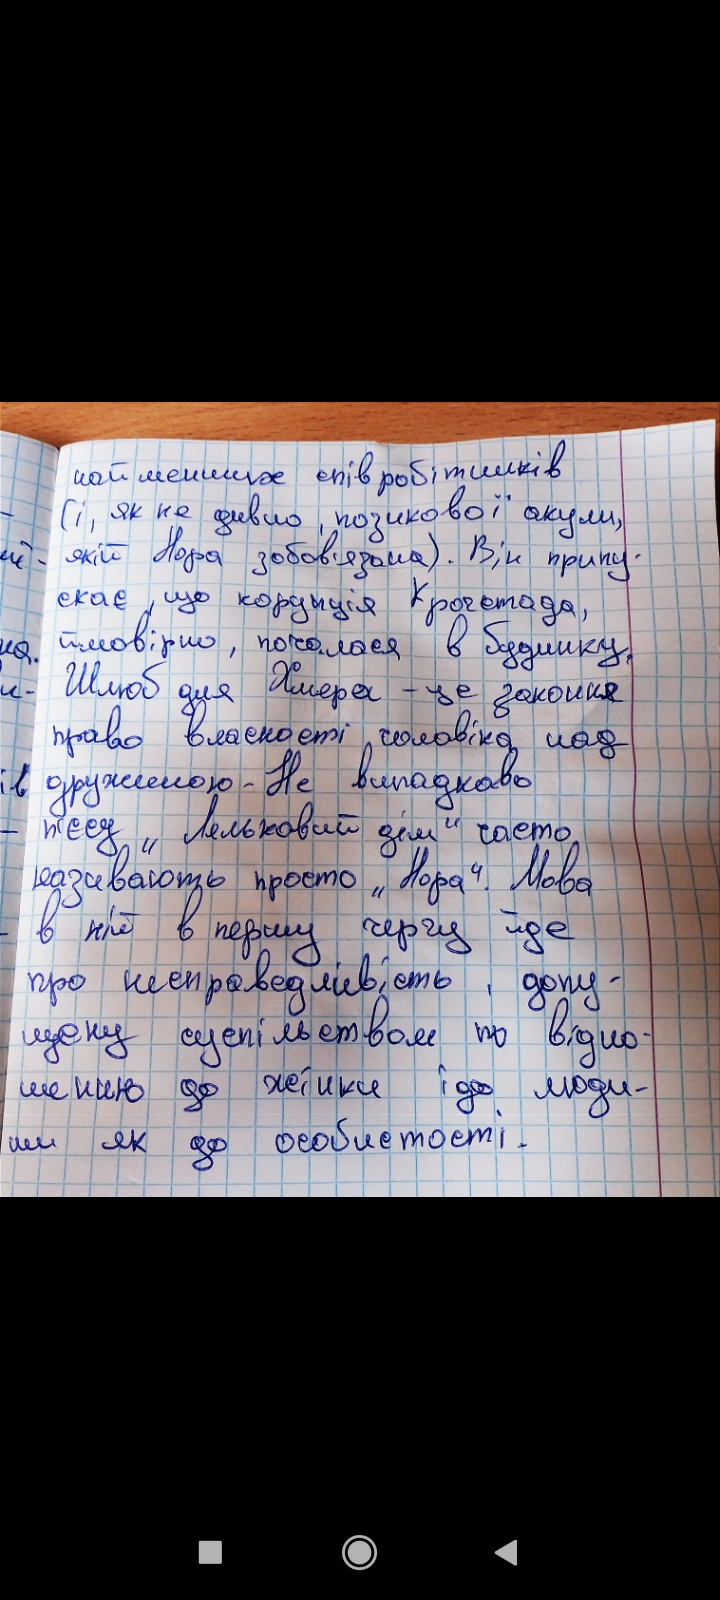 найменших співробітників
(і, як не дивно, позикової акули,
якій Нора зобов'язана). Він припу-
скає, що корупція Крогстада,
ймовірно, почалася в будинку.
Шлюб для Хмера - це законне
право власності чоловіка над
дружиною - Не випадково
п'єсу „Ляльковий дім" часто
називають просто „Нора". Мова
в ній в першу чергу йде
про несправедливість, допу-
щену суспільством по відно-
шенню до жінки і до люди-
ни як до особистості.